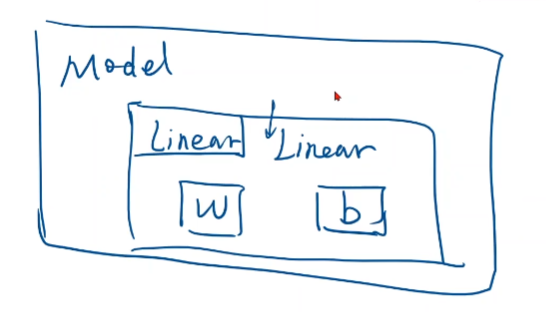 Model
Linear Linear
w b